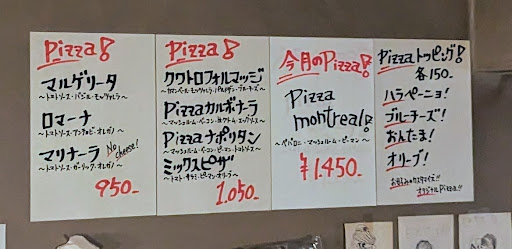 Pizza!
マルゲリータ
～トマトソース・バジル・モッツァレラ～
ロマーナ
～トマトソース・アンチョビ・オレガノ～
マリナーラ No cheese!
～トマトソース・ガーリック・オレガノ～
950-
Pizza!
クワトロフォルマッジ
～カマンベール・モッツァレラ・パルメザン・ブルーチーズ～
Pizzaカルボナーラ
～マッシュルーム・ベーコン・
Pizzaナポリタン
～マッシュルーム・ベーコン・ピーマン・トマトソース～
ミックスピザ
～トマト・サラミ・ピーマン・オリーブ～
1.050-
今月のPizza!
Pizza
montreal!
～ペパロニ・マッシュルーム・ピーマン～
¥1.450-
Pizzaトッピング!
各150-
ハラペーニョ!
ブルーチーズ!
おんたま!
オリーブ!
お好みのカスタマイズ!!
オリジナルPizza!!